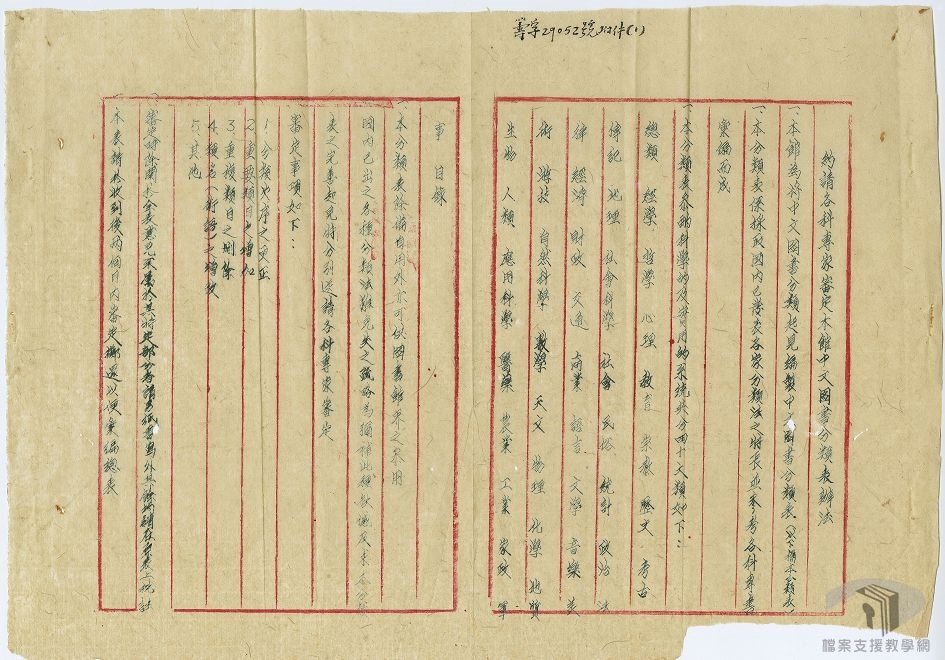 善字29052號附件(1)
約請各科專家審定本館中文圖書分類表辦法
一、本館為將中文圖書分類起見編製中文圖書分類表(以下稱本分類表)
一、本分類表係採取國內已發表各家分類法之特長並參考各科專書
彙編而成
一、本分類表參酌科學的及實用的系統共分四十大類如下：
總類 經學 哲學 心理 教育 宗教 歷史 考古
傳記 地理 社會科學 社會 民俗 統計 政治 法
律 經濟 財政 交通 商業 語言 文學 音樂 美
術 游技 自然科學 數學 天文 物理 化學 地質
生物 人類 應用科學 醫藥 農業 工業 家政 軍
事 目錄
一、本分類表除備自用外亦可供圖書館界之參用
國內已出之各種分類法難免失之疏略為彌補此種缺憾及求本分類
表之完善起見特分別送請各科專家審定
審定事項如下：
1. 分類次序之更正
2. 重要類目之增加
3. 重複類目之刪除
4. 類名(術語)之增改
5. 其他
一、審定時除關於全表意見不屬於某特定部分者請另紙書寫外其餘均請在原表上批註
一、本表請於收到後兩個月內審定擲還以便彙編總表
檔案支援教學網